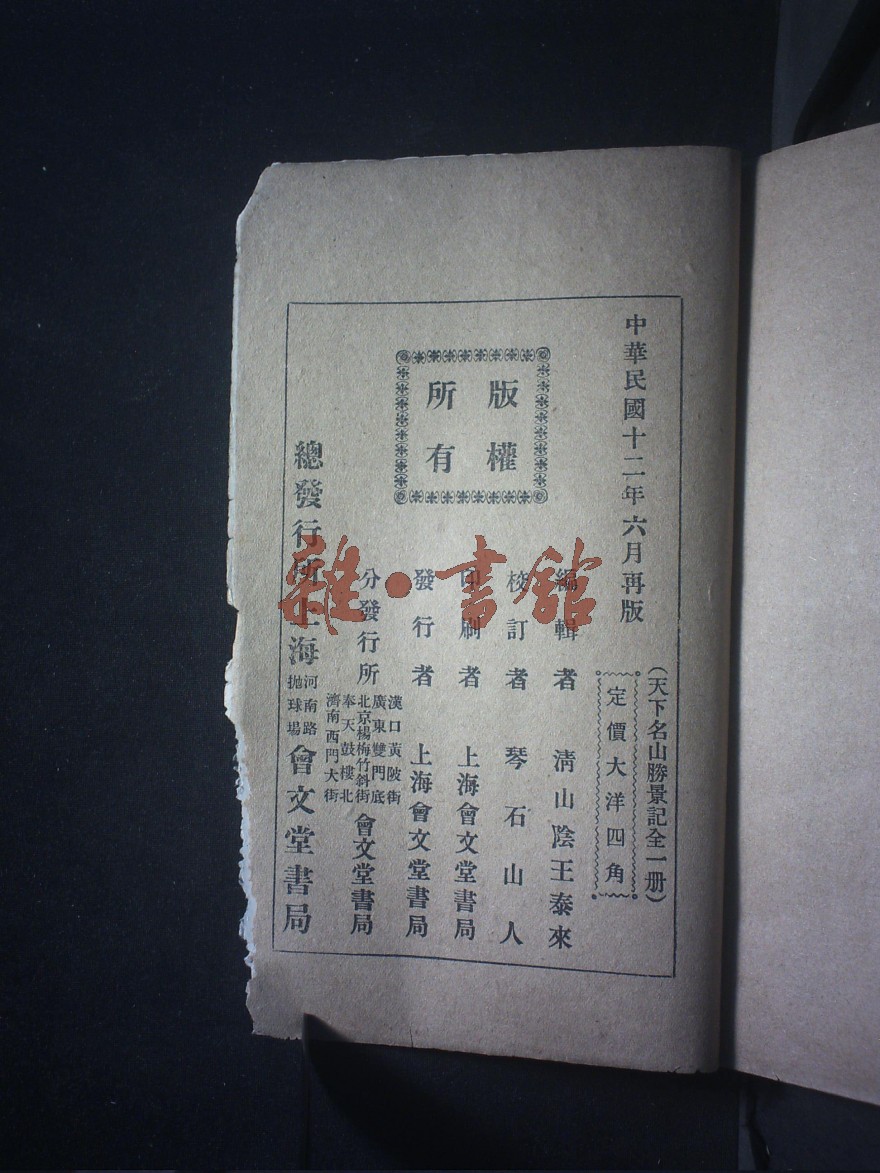 中華民國十二年六月再版
(天下名山勝景記全一册)
定價大洋四角
版權
所有
編輯者 淸山陰王泰來
校訂者 琴石山人
印刷者 上海會文堂書局
發行者 上海會文堂書局
分發行所
漢口黃陂街
廣東雙門底
北京楊梅竹斜街
奉天鼓樓北
濟南西門大街
會文堂書局
總發行所上海
河南路
拋球場
會文堂書局
雜·書館